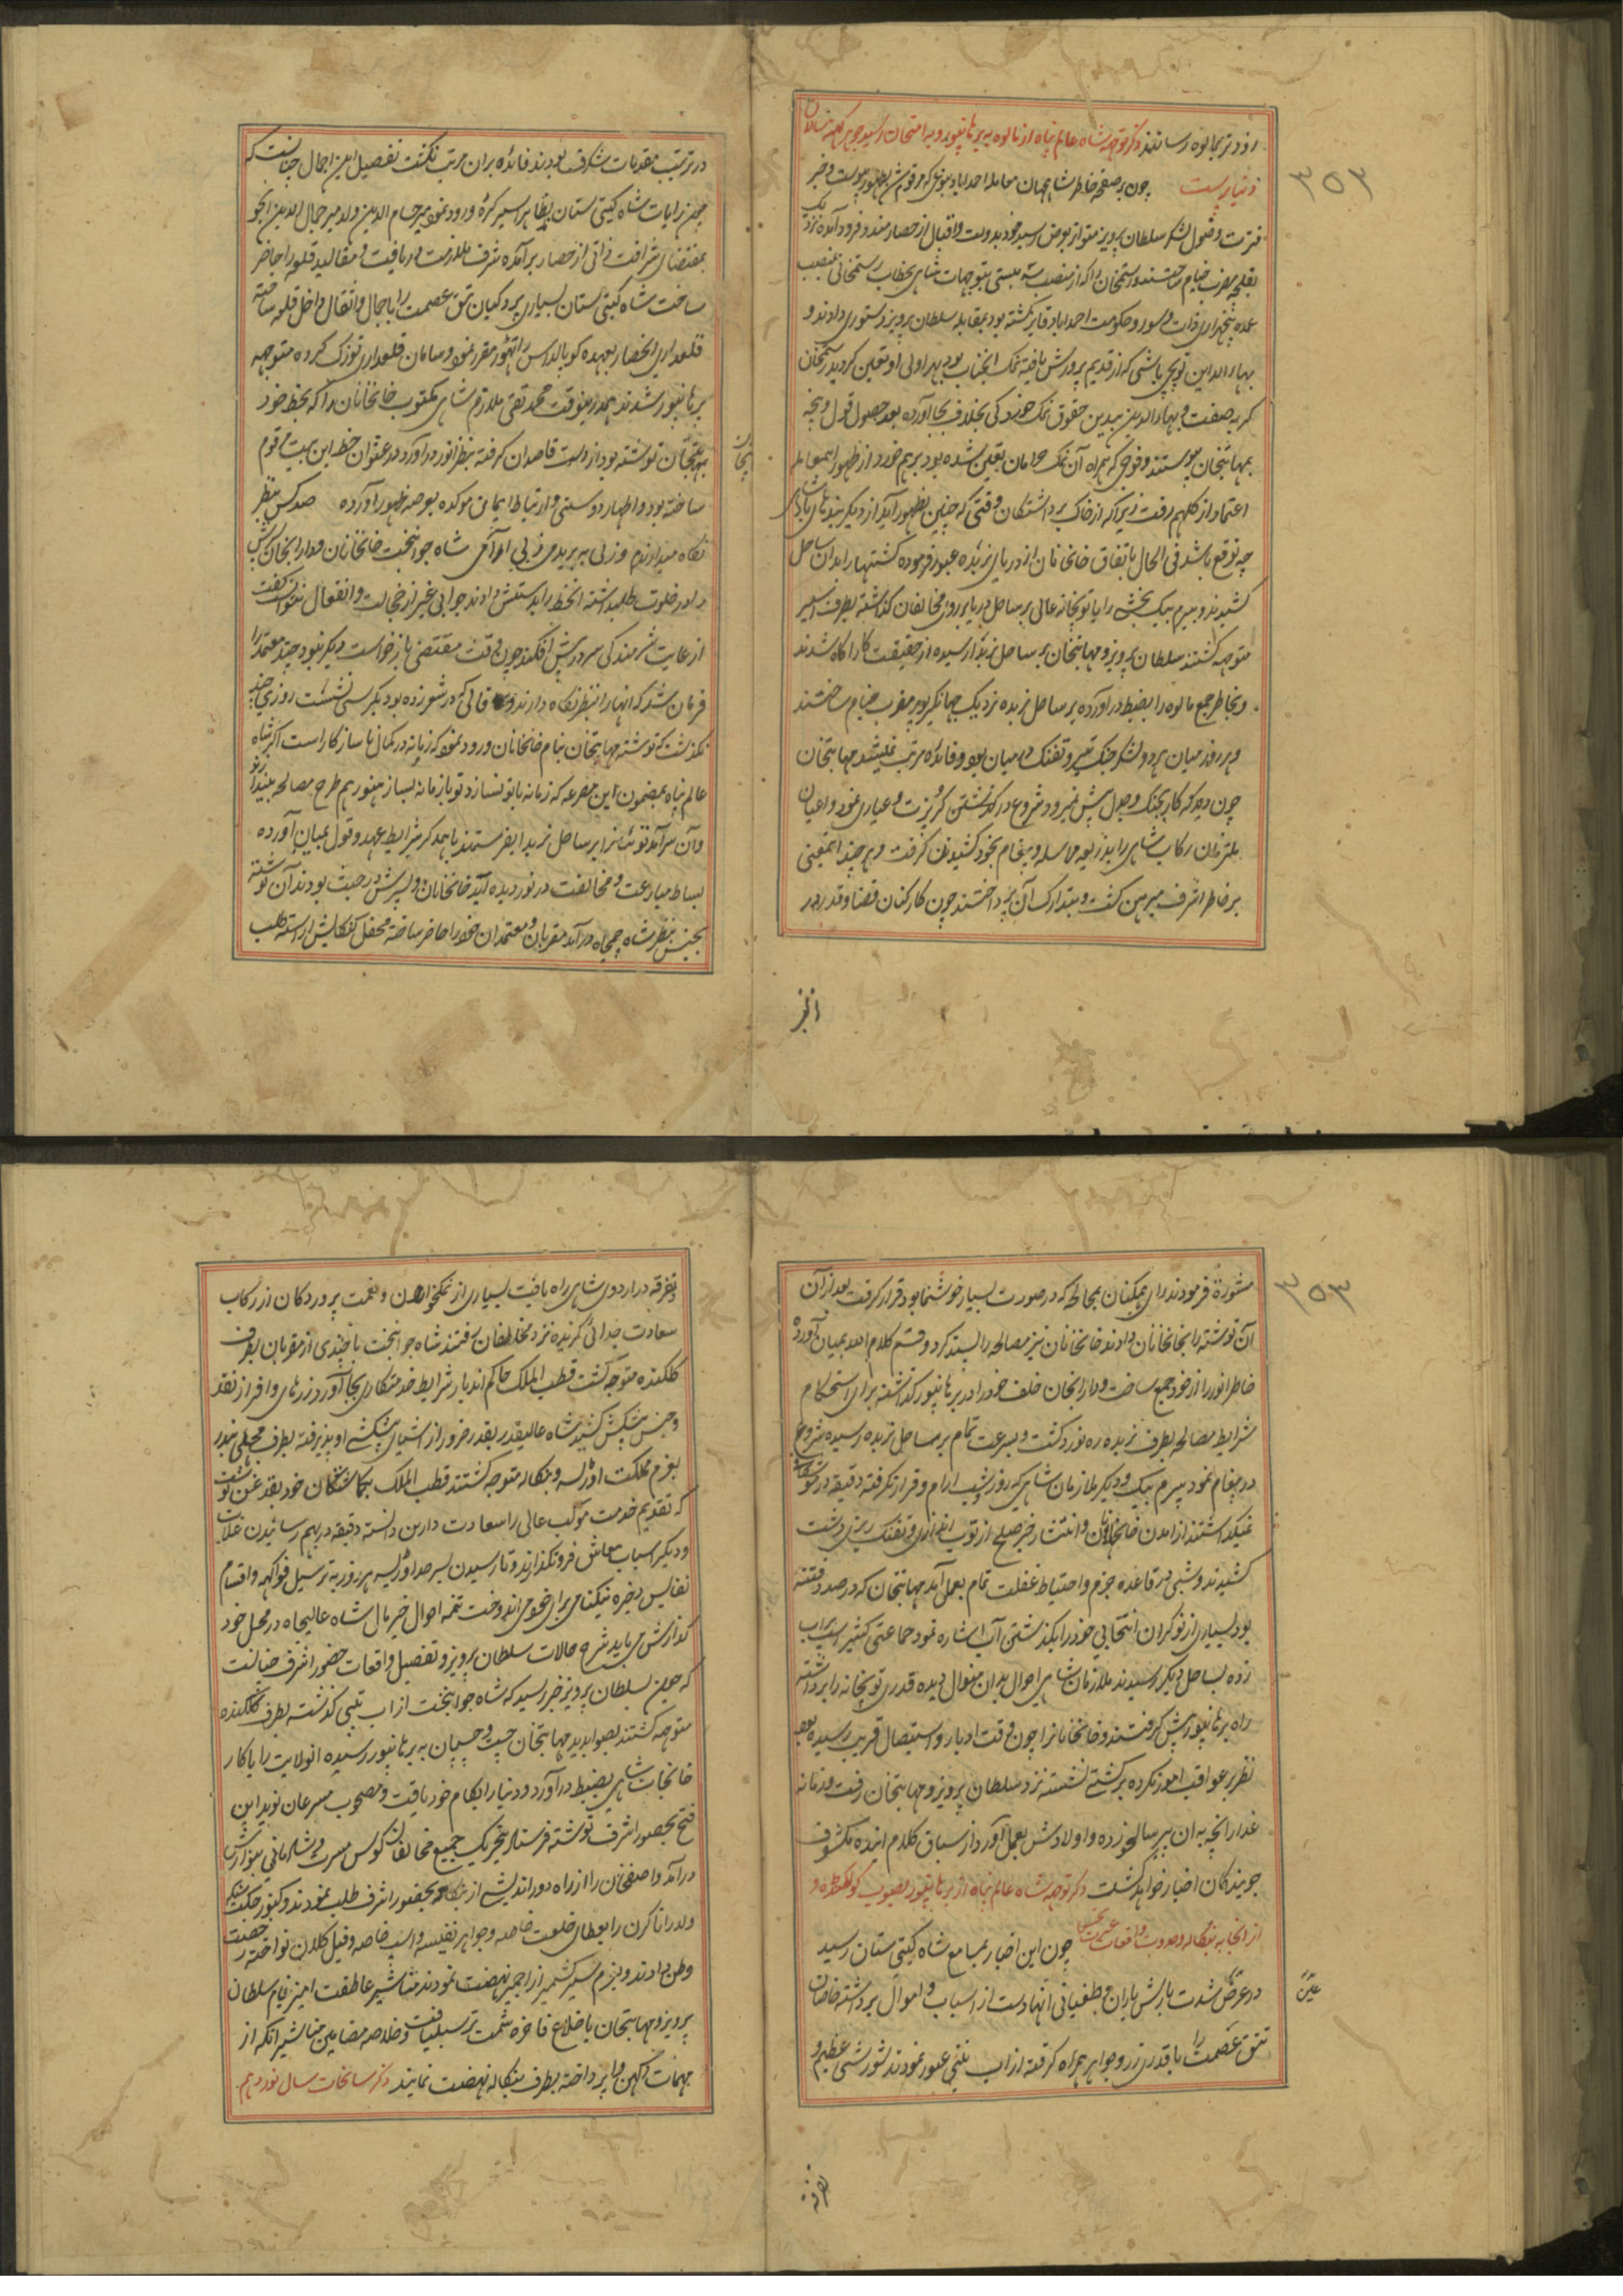 ۳۵۳
زودتر بمالوه رسانند ذکر توجه شاه عالم پناه از مالوه به برهانپور و به امتحان رسید جوهر کهنه سالان
دنیا پرست چون بر صفحه خاطر شاهجهان معامله احمداباد بنوعی که مرقوم شد بظهور پیوست و خبر
قرب وصول لشکر سلطان پرویز متواتر بعرض رسید خود بدولت و اقبال از حصار مندو فرود آمده نزدیک
بقلعه مضرب خیام ساختند و رستمخان را که از منصب سه بیستی بتوجهات شاهی بخطاب رستمخانی بمنصب
عمده پنجهزاری ذات و سوار و حکومت احداباد فایز گشته بود بمقابله سلطان پرویز دستوری دادند و
بهاء الدین توپچی باشی که از قدیم پرورش یافته نمک انجناب بود بهراولی او تعین گردید رستمخان
گربه صفت و بهار الدین بیدین حقوق نمک خوردگی بخلاف بجا آورده بعد حصول قول و بجه
بمهابتخان پیوستند و فوجی که همراه آن نمک حرامان تعین شده بود برهم خورد از ظهور اینمعامله
اعتماد از کلهم رفت زیرا که از خاک برداشتگان وقتی که چنین بظهور آید از دیگر بندهای پادشاهی
چه توقع باشد فی الحال باتفاق خانخانان از دریای نربده عبور فرموده کشتیها را بدان ساحل
کشیدند و بیرم بیک بخشی را با توپخانه عالی بر ساحل دریا بر روی مخالفان گذاشته بطرف اسیر
متوجه گشتند سلطان پرویز و مهابتخان بر ساحل نربدا رسیده از حقیقت کار اگاه شدند
و بخاطر جمع مالوه را بضبط درآورده بر ساحل نربده نزدیک جهانگیرپور مضرب خیام ساختند
و هر روز میان هر دو لشکر جنک تیر و تفنک در میان بود و فائده مرتب نمیشد مهابتخان
چون دید که کار بجنک و جدل پیش نمیرود شروع در گذشتن گربزت و عیاری نمود و اعیان
ملتزمان رکاب شاهی را بذریعه مراسله و پیغام بخود کشیدن گرفت و هر چند اینمعنی
بر خاطر اشرف مبرهن گشت و بتدارک آن پرداختند چون کارکنان قضا و قدر در
در ترتیب مقدمات شکرف بودند فائده بران مرتب نگشت تفصیل این اجمال چنانست که
چون رایات شاه گیتی ستان بظاهر اسیر گره ورود نمود میر حسام الدین ولد میر جمال الدین انجو
بمقتضای شرافت ذاتی از حصار برآمده شرف ملازمت دریافت و مقالید قلعه را حاضر
ساخت شاه گیتی ستان بسیاری پردکیان تتق عصمت را با جمال و اثقال داخل قلعه ساخته
قلعداری انحصار بعهده کوپالداس راتهور مقرر نموده و سامان قلعداری توزک کرده متوجه
برهانپور شدند همدرینوقت محمد تقی ملازم شاهی مکتوب خانخانان را که بخط خود
بمهابتخان نوشته بود از دست قاصدان گرفته بنظر انور درآورد در عنوان خط این بیت مرقوم
ساخته بود و اظهار دوستی و ارتباط ایمان موکده بعرصه ظهور آورده صد کس بنظر
نگاه میدارندم ورنه بپریدمی ز بی آرامی شاه جوانبخت خانخانان و دارابخان پسرش
را در خلوت طلبداشته انخط را بدستش دادند جوابی غیر از خجالت و انفعال نتوانست گفت
از غایت شرمندگی سر در پیش افکند چون وقت مقتضی بازخواست دیگر نبود چند معتمد را
فرمان شد که انها را بنظر نگاه دارند و فالی که در شعر زده بود بکرسی نشست روزی چند
نگذشت که نوشته مهابتخان بنام خانخانان ورود نمود که زمانه در کمال ناسازکار است اگر شاه
عالم پناه بمضمون این مصرعه که زمانه با تو نسازد تو با زمانه بساز هنوز هم طرح مصالحه بیندازند
و آن سرآمد نوئینان را بر ساحل نربدا بفرستند باهمدگر شرایط عهد و قول بمیان آورده
بساط مبارعت و مخالفت درنوردیده آید خانخانان و پسرش در حبس بودند آن نوشته
بجنس بنظر شاه جمجاه درآمد مقربان و معتمدان خود را حاضر ساخته محفل کنکایش آراسته طلب
انجز
۳۵۳
مشورة فرمودند رای همکنان بمصالحه که در صورت بسیار خوشنما بود قرار گرفت بعد ازان
آن نوشته را بخانخانان دادند خانخانان نیز مصالحه را پسند کرد و قسم کلام الله بمیان آورده
خاطر انور را از خود جمع ساخت و دارابخان خلف خود را در برهانپور گذاشته برای استحکام
شرایط مصالحه بطرف نربده ره نورد گشت و بسرعت تمام بر ساحل نربده رسیده شروع
در پیغام نمود بیرم بیک و دیگر ملازمان شاهی که روز و شب ارام و قرار نگرفته دقیقه در
نمیگذاشتند از امدن خانخانان و انتشار خبر صلح از توپ اندازی و تفنک ریزی دست
کشیدند و شبی در قاعده حزم و احتیاط غفلت تمام بعمل آمد مهابتخان که در صدد فتنه
بود بسیاری از نوکران انتخابی خود را بگذشتن آب اشاره نمود جماعتی کثیر اسپ بر آب
زده بساحل دیگر رسیدند ملازمان شاهی احوال بدان منوال دیده قدری توپخانه را برداشته
راه برهانپور پیش گرفتند و خانخانان را چون وقت ادبار و استیصال قریب رسیده بود
نظر بر عواقب امور نکرده بر کشتی نشسته نزد سلطان پرویز و مهابتخان رفت و زمانه
غدار انچه به ان پیر سالخورده و اولادش بعمل آورد از سباق کلام اینده مکشوف
جویندگان اخبار خواهد گشت ذکر توجه شاه عالم پناه از برهانپور بصوب کولکنده و
از انجا به بنکاله و حدوث واقعات عبرت بخش چون این اخبار بمسامع شاه گیتی ستان رسید
در عین شدت بارش باران و طغیانی انها دست از اسباب و اموال برداشته خاصان
عین
تتق عصمت را با قدری زر و جواهر همراه گرفته از اب تپتی عبور نمودند شورشی عظیم و
تفرقه
تفرقه در اردوی شاهی راه یافت بسیاری از نمکخواران و نعمت پروردگان از رکاب
سعادت جدائی گزیده نزد مخالفان رفتند شاه جوانبخت با چندی از مقربان بطرف
کلکنده متوجه گشت قطب الملک حاکم اندیار شرایط خدمتکاری بجا آورد و زرهای وافر از نقد
و جنس پیشکش کشید شاه عالیقدر بقدر ضرور از اشیای پیشکشی او پذیرفته بطرف مچهلی بندر
بعزم مملکت اودیسه و بنکاله متوجه گشتند قطب الملک بگماشتگان خود بقدغن نوشت
که تقدیم خدمت موکب عالی را سعادت دارین دانسته دقیقه در بهم رسانیدن غلات
و دیگر اسباب معاش فرونگذارند و تا رسیدن بسرحد اودیسه هر روز به ترسیل فواکهه و اقسام
نفایس ذخیره نیکنامی برای خود می اندوخت تتمه احوال خیر مال شاه عالیجاه در محل خود
گذارش می یابد شرح حالات سلطان پرویز و تفصیل واقعات حضور اشرف چنانست
که چون بسلطان پرویز خبر رسید که شاه جوانبخت از اب تپتی گذشته بطرف کلکنده
متوجه گشتند بصوابدید مهابتخان چست و چسپان به برهانپور رسیده انولایت را با کار
خانجات شاهی بضبط درآورد و دنیا را بکام خود یافت و مصحوب مسرعان نوید این
فتح بحضور اشرف نوشته فرستاد بتحریک جمیع مخالفان کوس مسرت و شادمانی بنوازش
درآمد و اصفخان را از راه دوراندیشی از بنکاله بحضور اشرف طلب نمودند و کنور جکت سنکه
ولد رانا کرن را بعطای خلعت خاصه و جواهر نفیسه و اسپ خاصه و فیل کلان نواخته رخصت
وطن دادند و بعزم سیر کشمیر از اجمیر نهضت نمودند مناشیر عاطفت امیز بنام سلطان
پرویز و مهابتخان با خلاع فاخره سمت ترسیل یافت و خلاصه مضامین مناشیر انکه از
مهمات دکهن وا پرداخته بطرف بنکاله نهضت نمایند ذکر سانحات سال نوزدهم